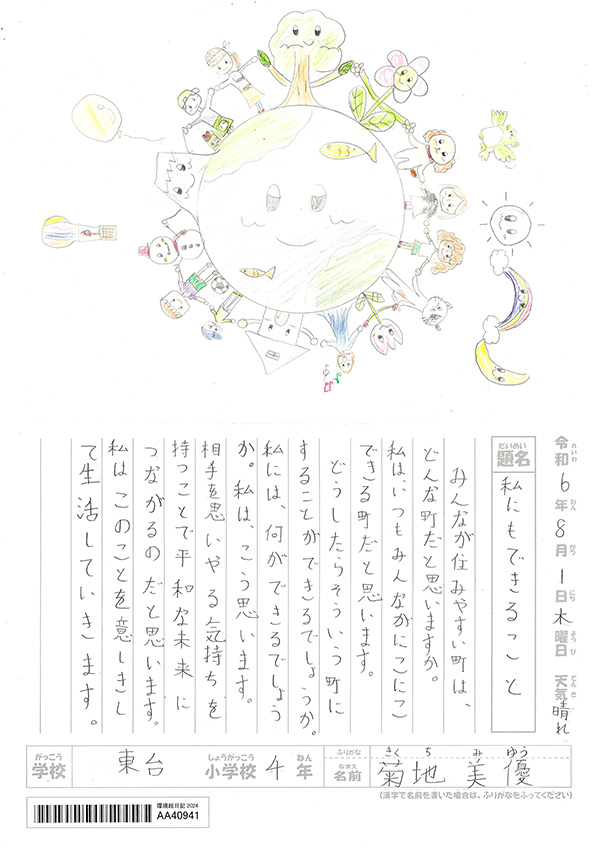 令和6年8月1日木曜日 天気晴れ
れいわ ねん がつ にち ようび てんき
だいめい
題名 私にもできること
みんなが住みやすい町は、
どんな町だと思いますか。
私は、いつもみんながにこにこ
できる町だと思います。
どうしたらそういう町に
することができるでしょうか。
私には、何ができるでしょう
か。私は、こう思います。
相手を思いやる気持ちを
持つことで平和な未来に
つながるのだと思います。
私はこのことを意しきし
て生活していきます。
がっこう しょうがっこう ねん ふりがな きくち みゆう
学校 東台 小学校 4年 なまえ 名前 菊地 美優
(漢字で名前を書いた場合は、ふりがなをふってください)
環境絵日記 2024
AA40941